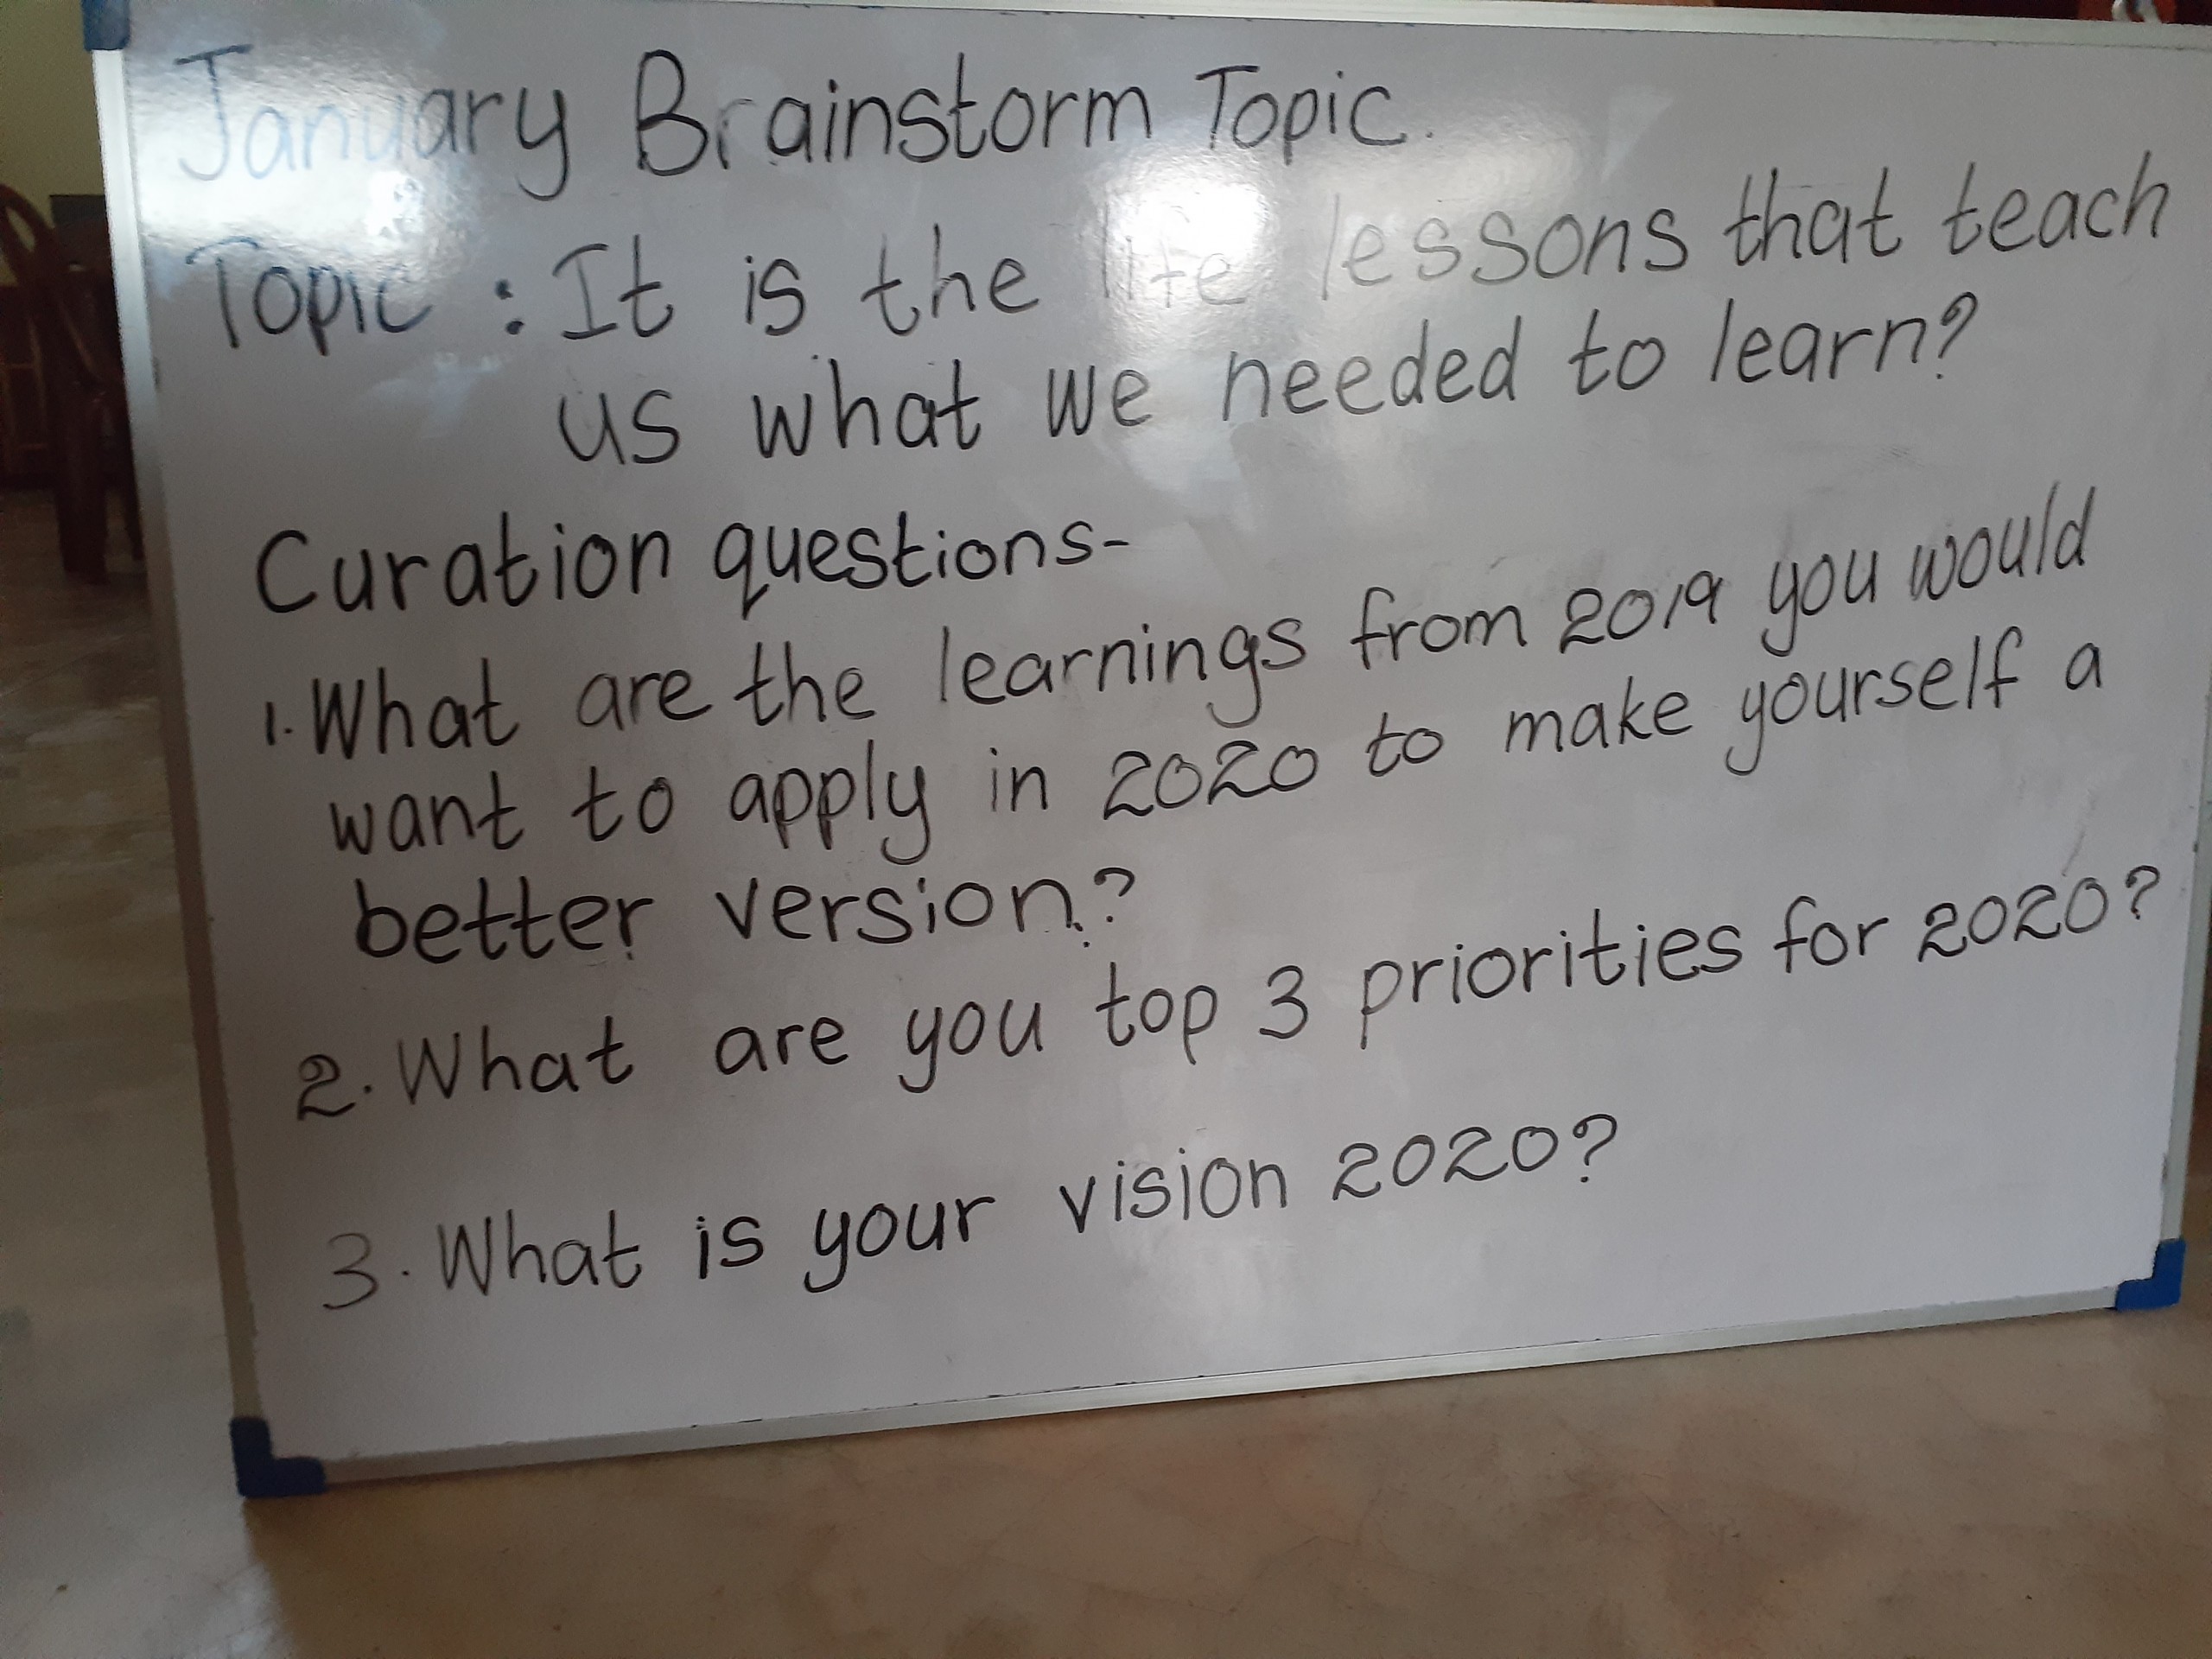 January Brainstorm Topic.
Topic : It is the life lessons that teach
us what we needed to learn?
Curation questions-
1. What are the learnings from 2019 you would
want to apply in 2020 to make yourself a
better version?
2. What are you top 3 priorities for 2020?
3. What is your vision 2020?